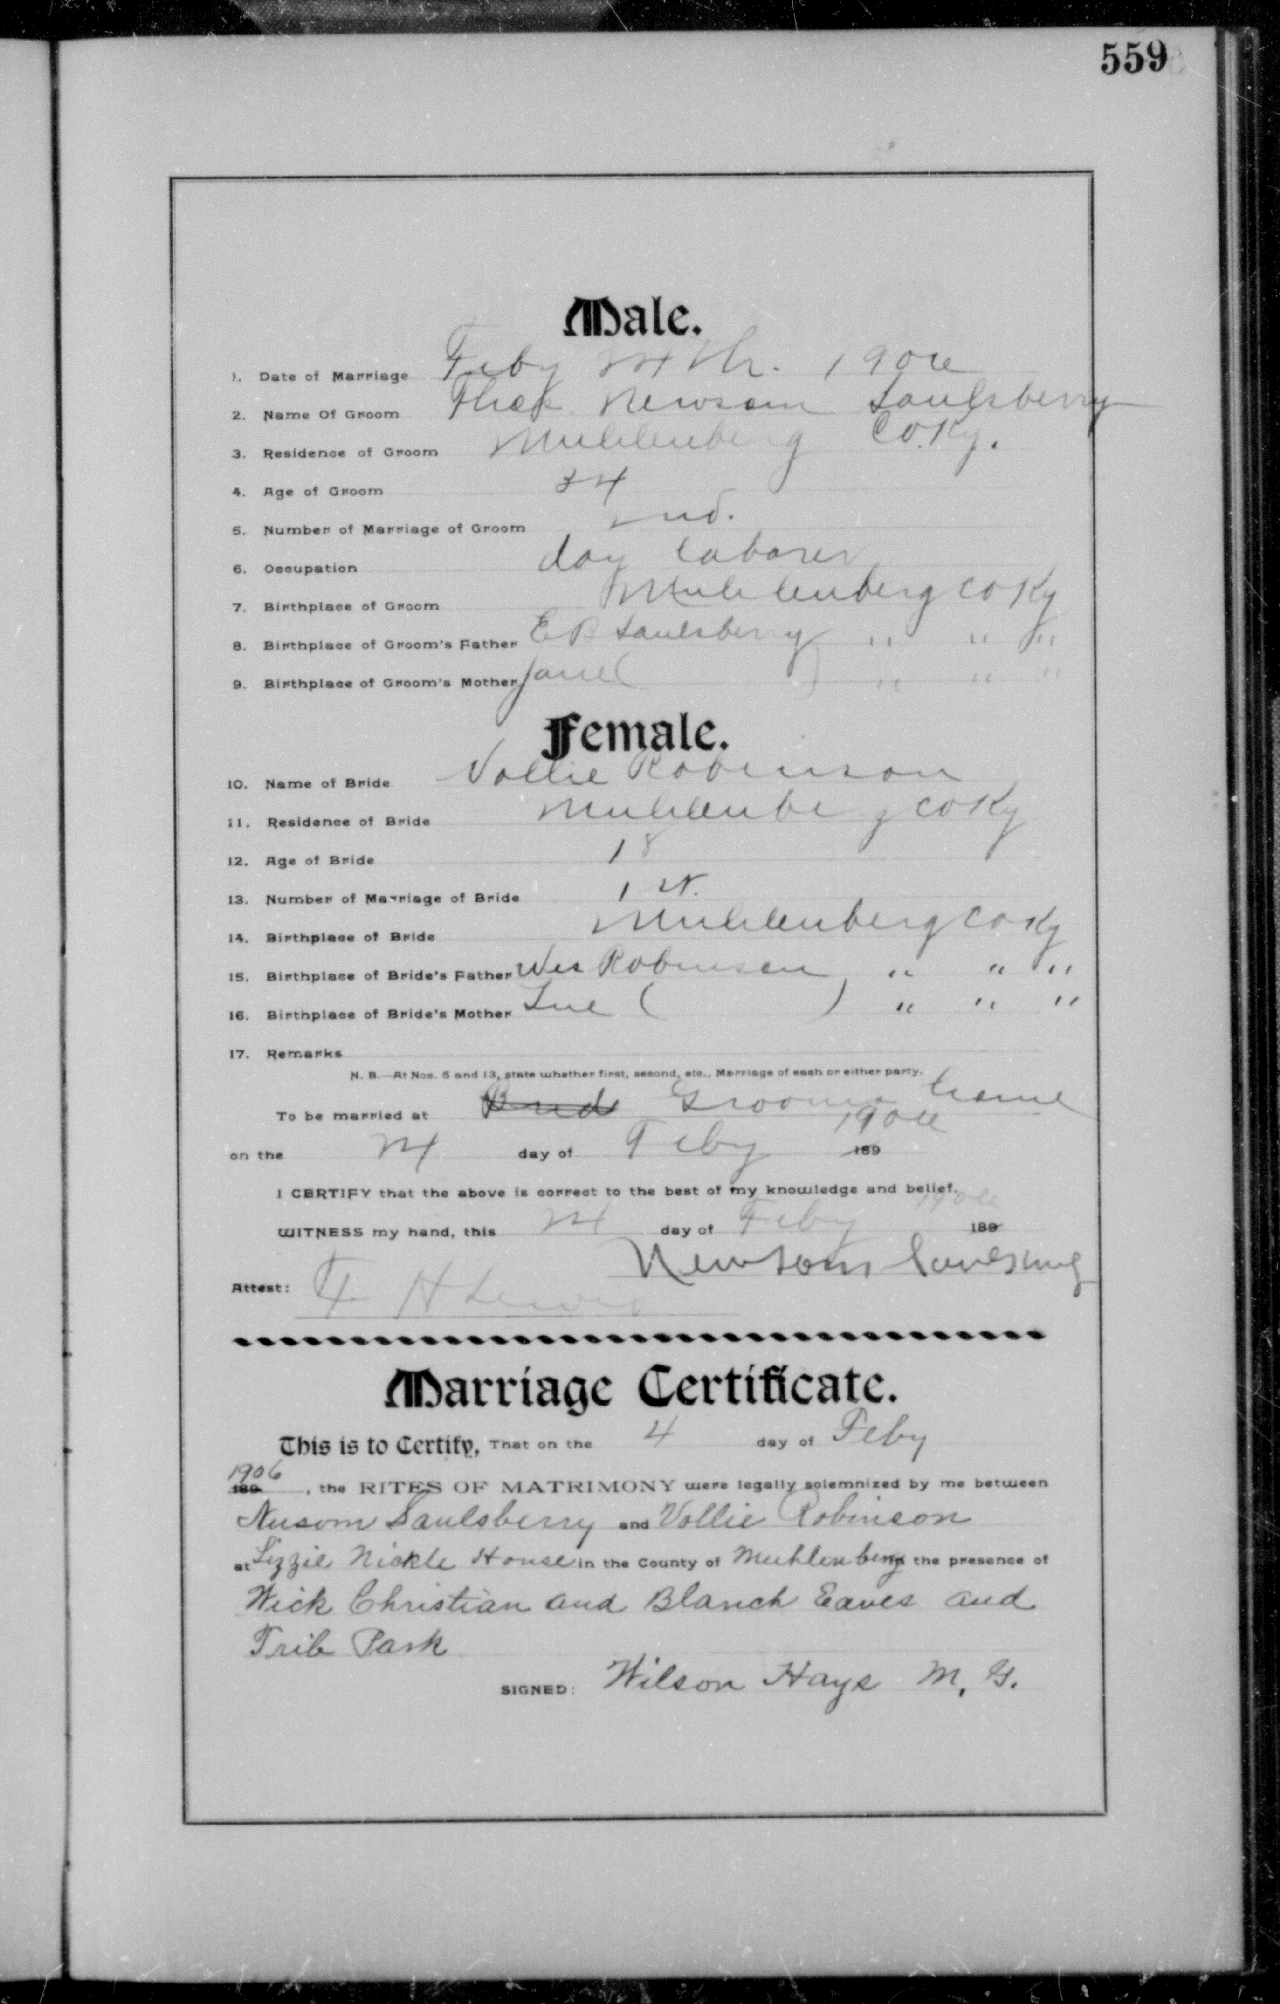 559
Male.
1. Date of Marriage Feby 1906
2. Name Of Groom Newsom Saulsberry
3. Residence of Groom Muhlenberg Co. Ky.
4. Age of Groom 34
5. Number of Marriage of Groom 2nd.
6. Occupation day laborer
7. Birthplace of Groom Muhlenberg Co Ky
8. Birthplace of Groom's Father E B Saulsberry " " "
9. Birthplace of Groom's Mother Jane ( ) " " "
Female.
10. Name of Bride Vollie Robinson
11. Residence of Bride Muhlenberg Co Ky
12. Age of Bride 18
13. Number of Marriage of Bride 1st.
14. Birthplace of Bride Muhlenberg Co Ky
15. Birthplace of Bride's Father Wes Robinson " " "
16. Birthplace of Bride's Mother Sue ( ) " " "
17. Remarks
N. B.—At Nos. 5 and 13, state whether first, second, etc., Marriage of each or either party.
To be married at Grooms home
on the day of Feby 1906 189
I CERTIFY that the above is correct to the best of my knowledge and belief.
WITNESS my hand, this day of Feby 1906 189
Newsom Saulsberry
Attest: H Lewis
Marriage Certificate.
This is to Certify, That on the 4 day of Feby
1906 189 , the RITES OF MATRIMONY were legally solemnized by me between
Nusom Saulsberry and Vollie Robinson
at Lizzie Nickle House in the County of Muhlenberg the presence of
Wick Christian and Blanch Eaves and
Trib Park
SIGNED: Wilson Hays M. G.